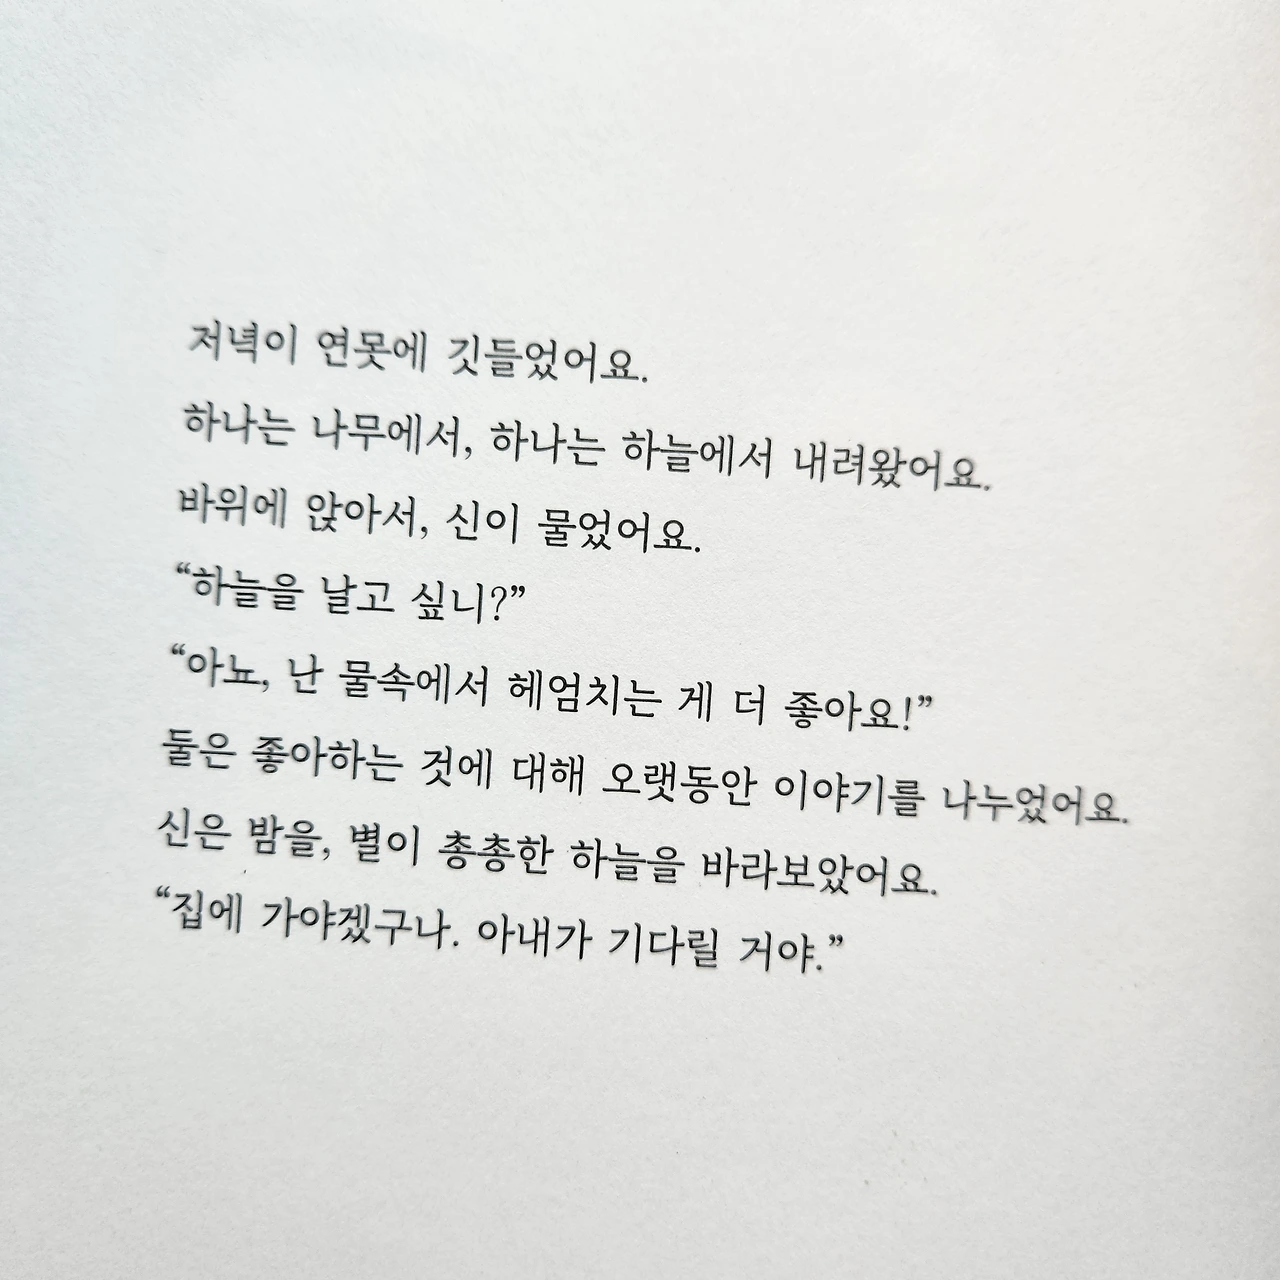 저녁이 연못에 깃들었어요.
하나는 나무에서, 하나는 하늘에서 내려왔어요.
바위에 앉아서, 신이 물었어요.
“하늘을 날고 싶니?”
“아뇨, 난 물속에서 헤엄치는 게 더 좋아요!”
둘은 좋아하는 것에 대해 오랫동안 이야기를 나누었어요.
신은 밤을, 별이 총총한 하늘을 바라보았어요.
“집에 가야겠구나. 아내가 기다릴 거야.”